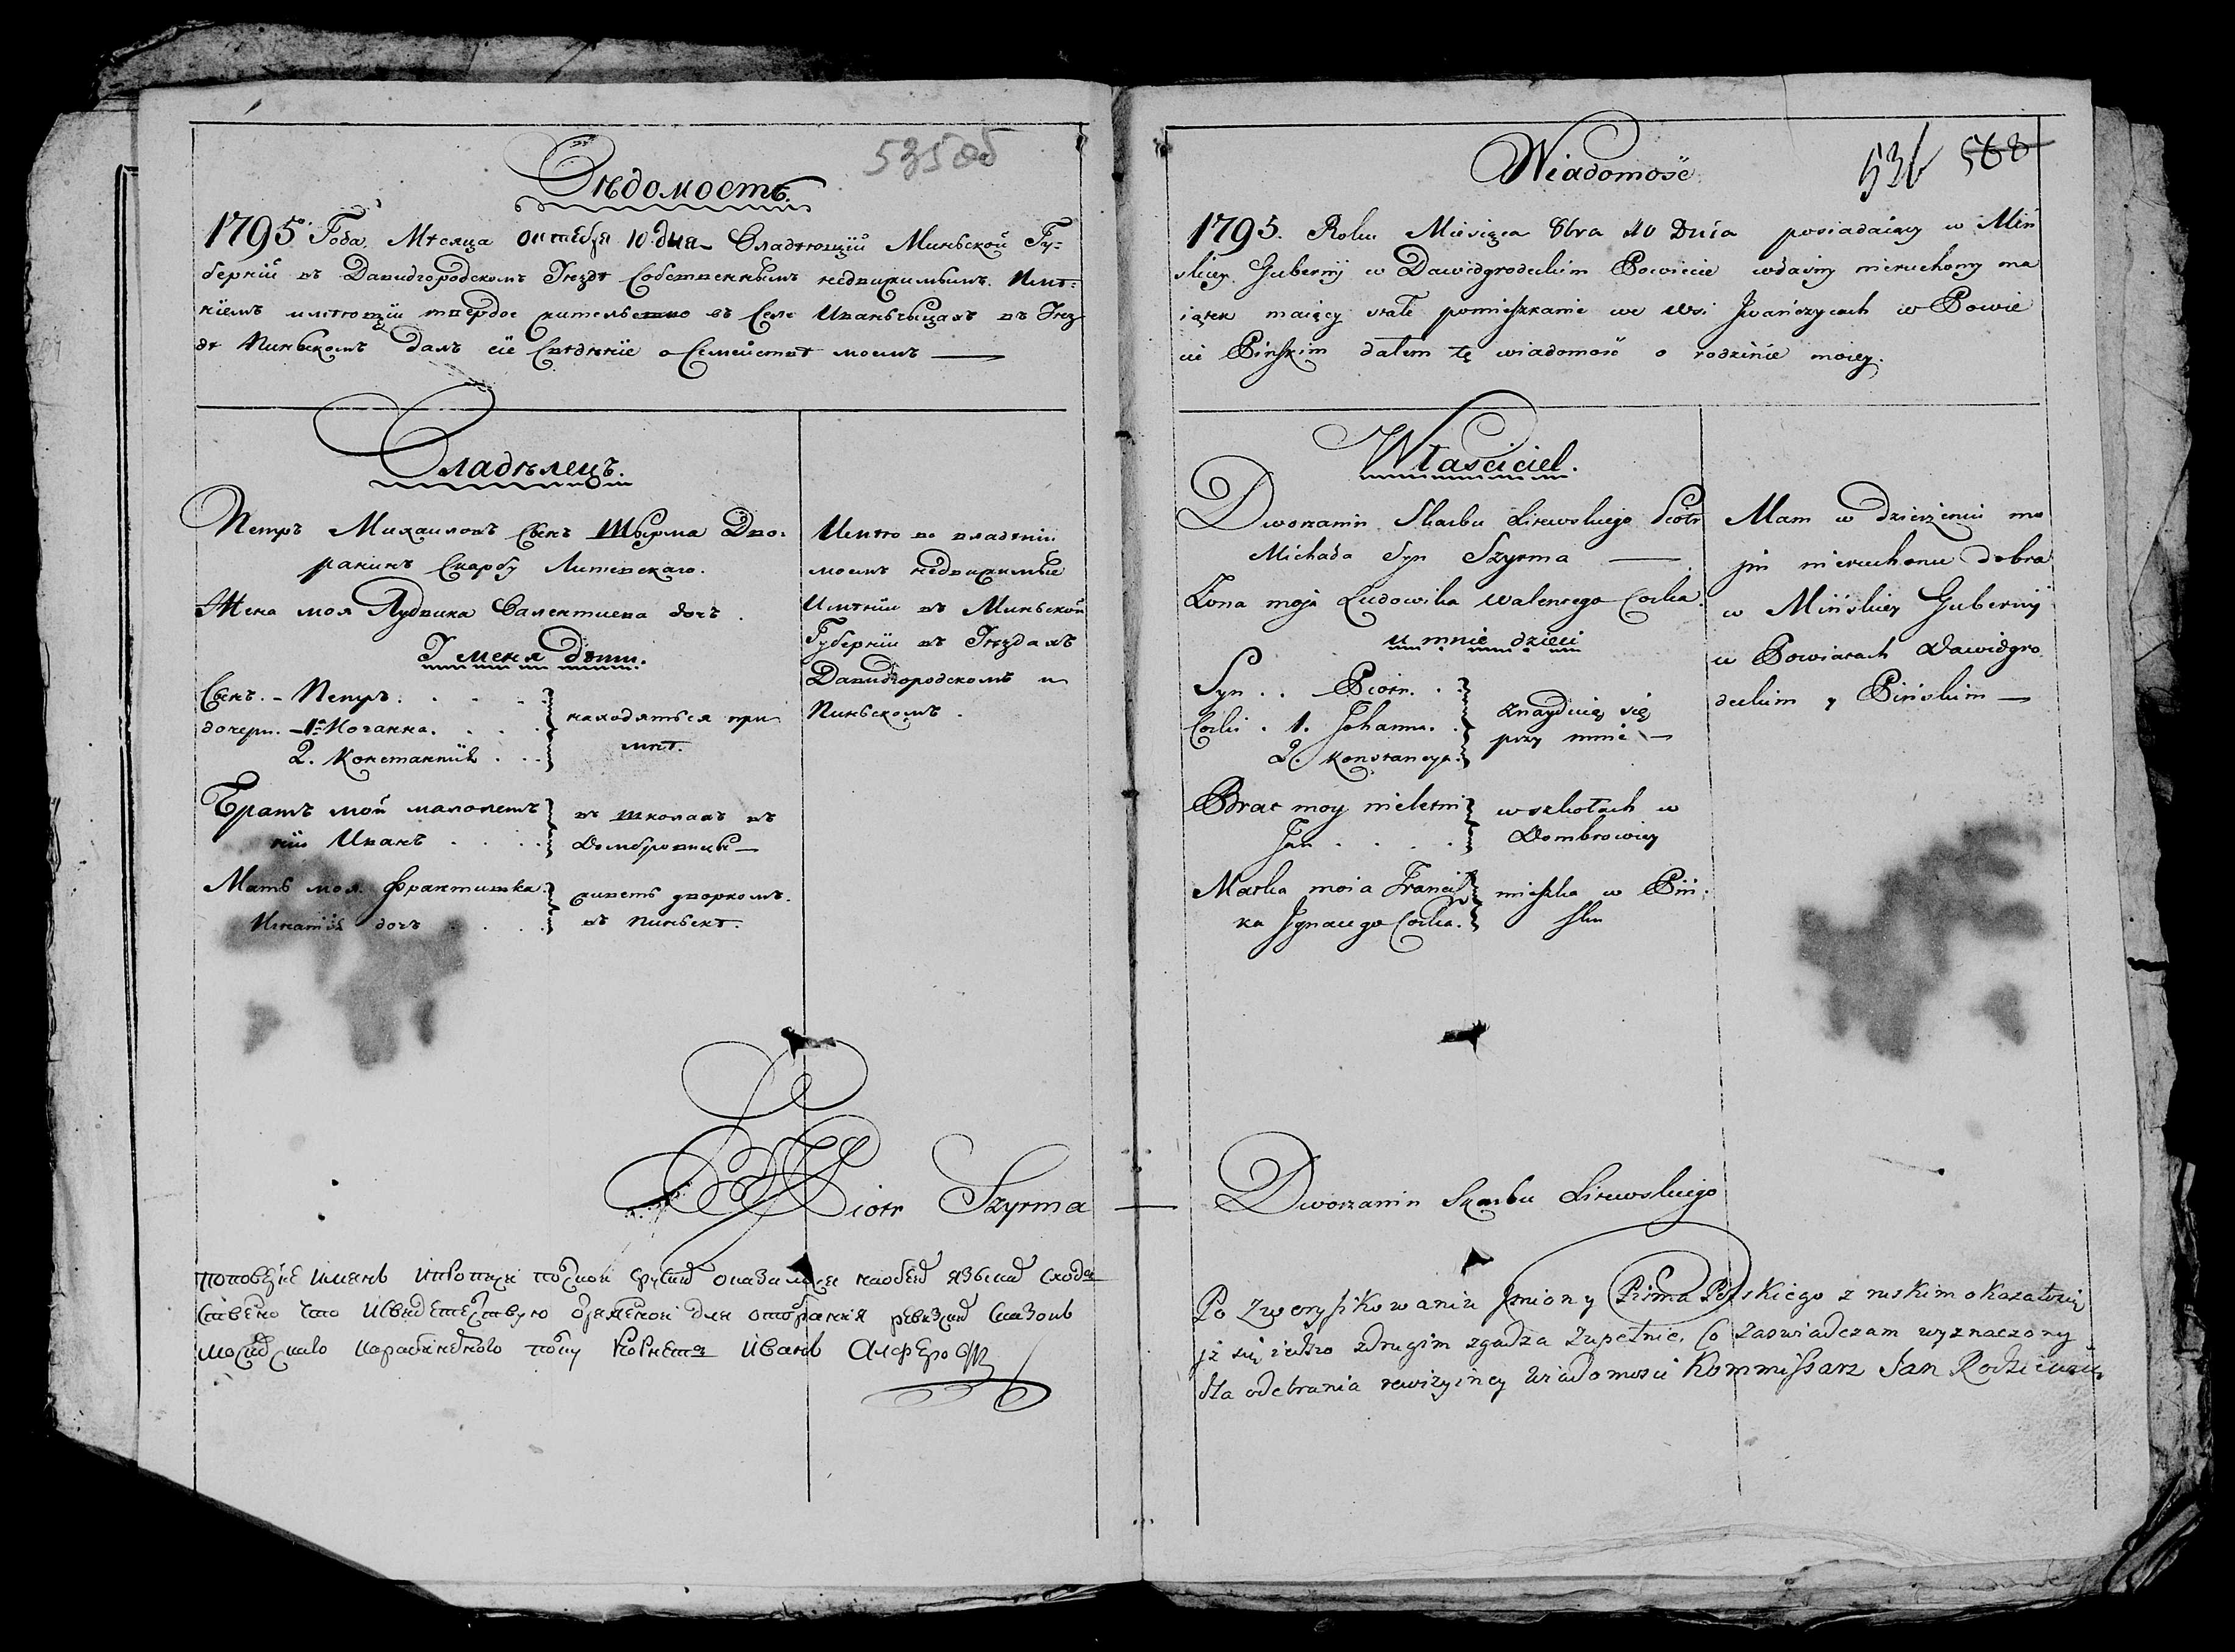 535 об
Вѣдомость.
1795го Года. Мѣсяца октября 10 дня Владѣющій Миньской Гу-
берніи въ Давидгородскомъ Уѣздѣ Собственнымъ недвижимымъ Имѣ-
ніемъ имѣющій твердое жительство въ Селе Иваньчыцахъ въ Уѣз
дѣ Пиньскомъ далъ сіе Свѣдѣніе о Семействѣ моемъ
Владѣлецъ.
Петръ Михаиловъ Сынъ Шырма Дво-
ранинъ Скарбу Литевскаго.
Жена моя Лудвика Валентиева дочъ.
У меня дѣти.
Сынъ. - Петръ.
дочери. - 1. Иоганна.
2. Константій
находяться при
мнѣ.
Братъ мой малолетъ
ній Иванъ
въ школахъ въ
Домбровицы
Мать моя Франтишка
Игнатія дочъ
живетъ дворкомъ
въ Пиньскѣ.
Имѣю во владѣнии
моемъ недвижимые
Имѣнии въ Миньской
Губерніи въ Уѣздахъ
Давидгородскомъ и
Пиньскомъ.
Piotr Szyrma
Иванъ Алферов
536 568
Wiadomość
1795. Roku Miesięca 8bra 10 Dnia posiadaiący w Miń
skiey Gubernij w Dawidgrodeckim Powiecie własny nieruchomy ma
iątek maiący stałe pomieszkanie we Wsi Jwańczycach w Powie
cie Pińskim dałem tę wiadomość o rodzinie moiey.
Właściciel.
Dworzanin Skarbu Litewskiego Piotr
Michała Syn Szyrma
Żona moja Ludowika Walentego Corka.
u mnie dzieci
Syn . . Piotr.
Corki . 1. Johanna.
2. Konstancya.
znayduią się
przy mnie
Brat moy nieletni
Jan
w szkołach w
Dombrowicy
Matka moia Francisz
ka Jgnacego Corka.
mieszka w Piń
sku
Mam w dzierżeniu mo
jm nieruchome dobra
w Mińskiey Gubernij
w Powiatach Dawidgro
deckim y Pińskim
Dworzanin Skarbu Litewskiego
Po zweryfikowaniu Jmiony Pisma Polskiego z ruskim okazało się
jż się iedno zdrugim zgadza zupełnie. Co zaswiadczam wyznaczony
dla odebrania rewizyiney Wiadomosci Kommissarz Jan Rodziewicz